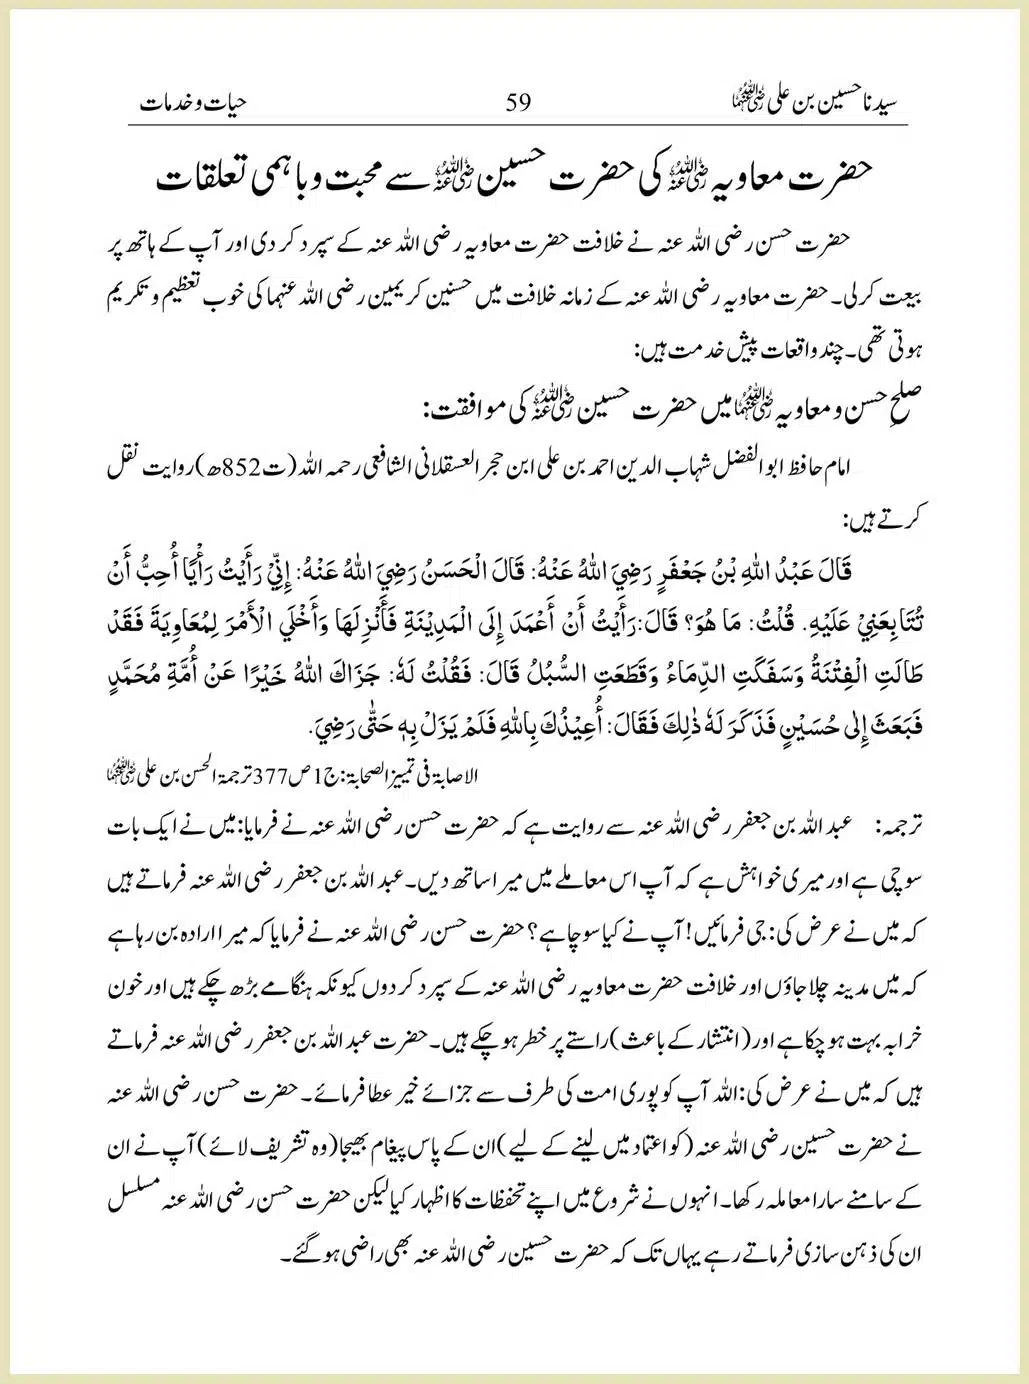 سیدنا حسین بن علی رضی اللہ عنہما 59 حیات و خدمات
حضرت معاویہ رضی اللہ عنہ کی حضرت حسین رضی اللہ عنہ سے محبت و باہمی تعلقات
حضرت حسن رضی اللہ عنہ نے خلافت حضرت معاویہ رضی اللہ عنہ کے سپرد کر دی اور آپ کے ہاتھ پر
بیعت کر لی۔ حضرت معاویہ رضی اللہ عنہ کے زمانہ خلافت میں حسنین کریمین رضی اللہ عنہما کی خوب تعظیم و تکریم
ہوتی تھی۔ چند واقعات پیش خدمت ہیں:
صلحِ حسن و معاویہ رضی اللہ عنہما میں حضرت حسین رضی اللہ عنہ کی موافقت:
امام حافظ ابو الفضل شہاب الدین احمد بن علی ابن حجر العسقلانی الشافعی رحمہ اللہ (ت852ھ) روایت نقل
کرتے ہیں:
قَالَ عَبْدُ اللهِ بْنُ جَعْفَرٍ رَضِيَ اللهُ عَنْهُ: قَالَ الْحَسَنُ رَضِيَ اللهُ عَنْهُ: إِنِّيْ رَأَيْتُ رَأْيًا أُحِبُّ أَنْ
تُتَابِعَنِيْ عَلَيْهِ. قُلْتُ: مَا هُوَ؟ قَالَ: رَأَيْتُ أَنْ أَعْمَدَ إِلَى الْمَدِيْنَةِ فَأَنْزِلَهَا وَأَخْلَي الْأَمْرَ لِمُعَاوِيَةَ فَقَدْ
طَالَتِ الْفِتْنَةُ وَسَفَكَتِ الدِّمَاءُ وَقَطَعَتِ السُّبُلُ قَالَ: فَقُلْتُ لَهٗ: جَزَاكَ اللهُ خَيْرًا عَنْ أُمَّةِ مُحَمَّدٍ
فَبَعَثَ إِلٰى حُسَيْنٍ فَذَكَرَ لَهٗ ذٰلِكَ فَقَالَ: أُعِيْذُكَ بِاللهِ فَلَمْ يَزَلْ بِهٖ حَتّٰى رَضِيَ.
الاصابۃ فی تمییز الصحابۃ: ج1 ص377 ترجمۃ الحسن بن علی رضی اللہ عنہما
ترجمہ: عبد اللہ بن جعفر رضی اللہ عنہ سے روایت ہے کہ حضرت حسن رضی اللہ عنہ نے فرمایا: میں نے ایک بات
سوچی ہے اور میری خواہش ہے کہ آپ اس معاملے میں میرا ساتھ دیں۔ عبد اللہ بن جعفر رضی اللہ عنہ فرماتے ہیں
کہ میں نے عرض کی: جی فرمائیں! آپ نے کیا سوچا ہے؟ حضرت حسن رضی اللہ عنہ نے فرمایا کہ میرا ارادہ بن رہا ہے
کہ میں مدینہ چلا جاؤں اور خلافت حضرت معاویہ رضی اللہ عنہ کے سپرد کر دوں کیونکہ ہنگامے بڑھ چکے ہیں اور خون
خرابہ بہت ہو چکا ہے اور (انتشار کے باعث) راستے پر خطر ہو چکے ہیں۔ حضرت عبد اللہ بن جعفر رضی اللہ عنہ فرماتے
ہیں کہ میں نے عرض کی: اللہ آپ کو پوری امت کی طرف سے جزائے خیر عطا فرمائے۔ حضرت حسن رضی اللہ عنہ
نے حضرت حسین رضی اللہ عنہ (کو اعتماد میں لینے کے لیے) ان کے پاس پیغام بھیجا (وہ تشریف لائے) آپ نے ان
کے سامنے سارا معاملہ رکھا۔ انہوں نے شروع میں اپنے تحفظات کا اظہار کیا لیکن حضرت حسن رضی اللہ عنہ مسلسل
ان کی ذہن سازی فرماتے رہے یہاں تک کہ حضرت حسین رضی اللہ عنہ بھی راضی ہو گئے۔